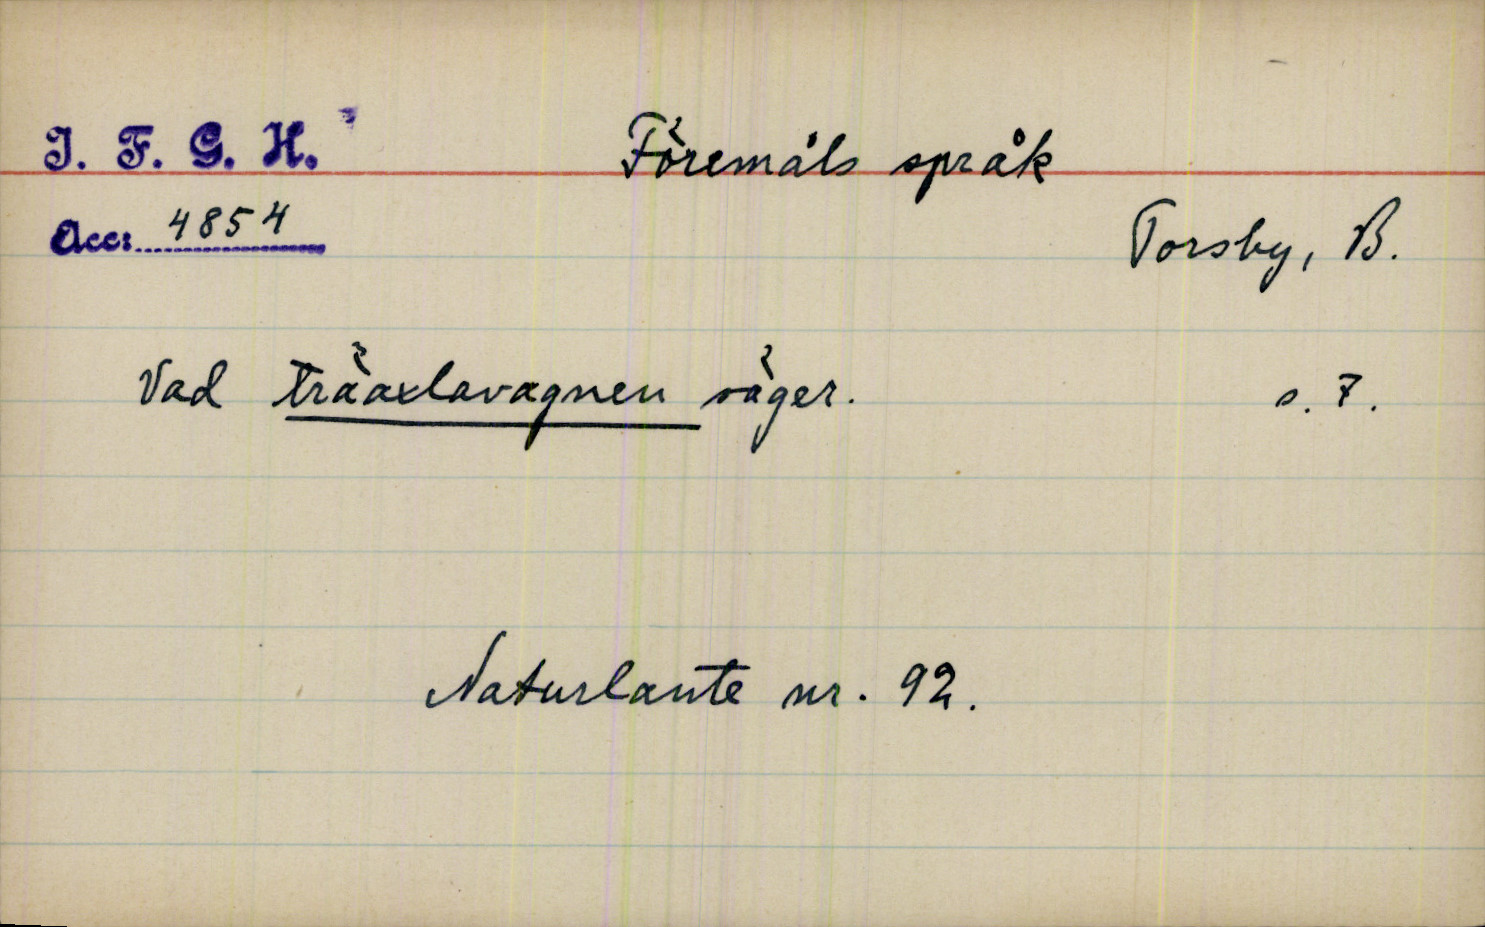 I. F. G. H.
Föremåls språk
Acc: 4854
Torsby, B.
Vad träaxlavagnen säger.
s. 7.
Naturlaute nr. 92.